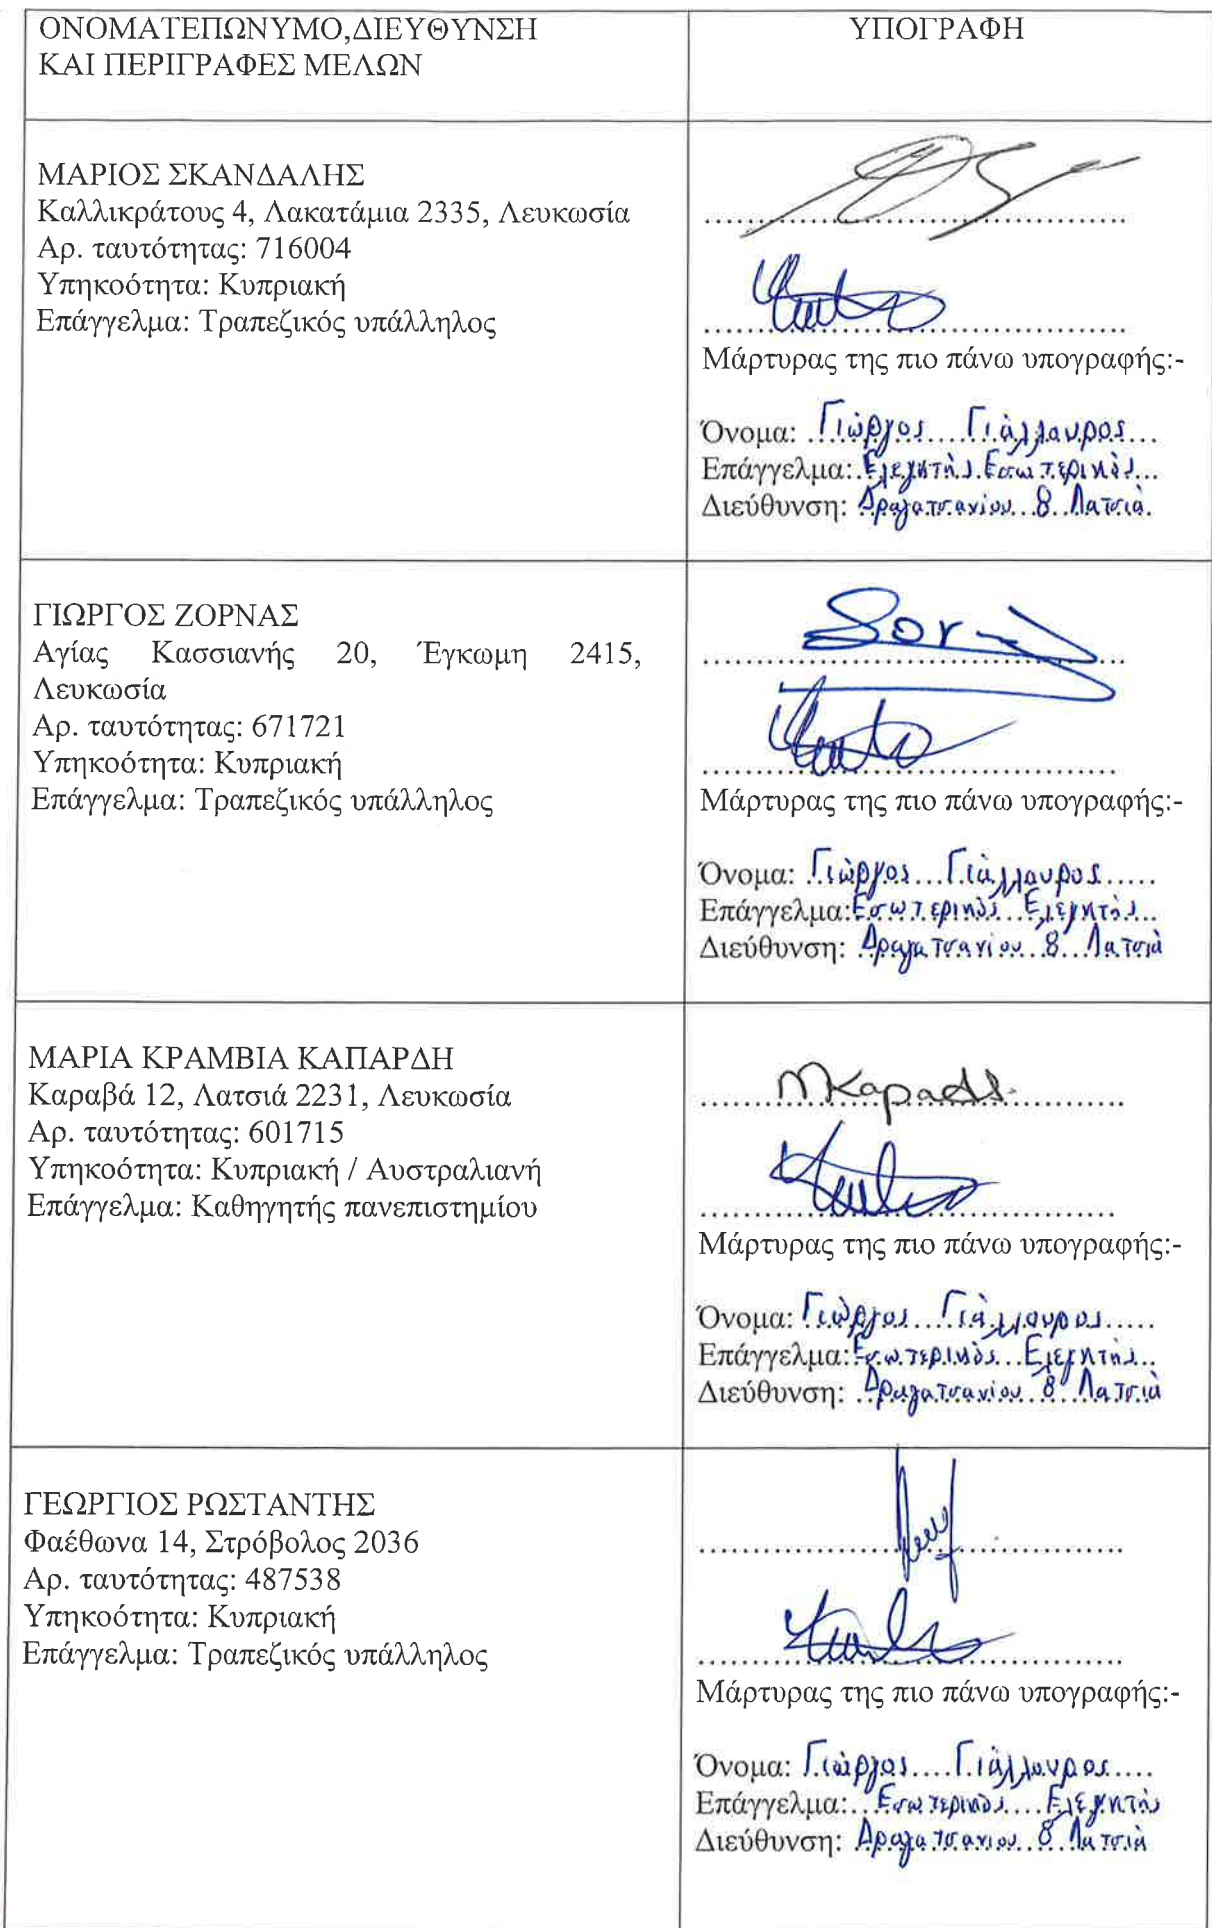 ΟΝΟΜΑΤΕΠΩΝΥΜΟ,ΔΙΕΥΘΥΝΣΗ
ΚΑΙ ΠΕΡΙΓΡΑΦΕΣ ΜΕΛΩΝ
ΥΠΟΓΡΑΦΗ
ΜΑΡΙΟΣ ΣΚΑΝΔΑΛΗΣ
Καλλικράτους 4, Λακατάμια 2335, Λευκωσία
Αρ. ταυτότητας: 716004
Υπηκοότητα: Κυπριακή
Επάγγελμα: Τραπεζικός υπάλληλος
Μάρτυρας της πιο πάνω υπογραφής:-
Όνομα: Γιώργος Γιάλλουρος
Επάγγελμα: Ελεγκτής Εσωτερικός
Διεύθυνση: Δραγατσανίου 8 Λατσιά
ΓΙΩΡΓΟΣ ΖΟΡΝΑΣ
Αγίας Κασσιανής 20, Έγκωμη 2415,
Λευκωσία
Αρ. ταυτότητας: 671721
Υπηκοότητα: Κυπριακή
Επάγγελμα: Τραπεζικός υπάλληλος
Μάρτυρας της πιο πάνω υπογραφής:-
Όνομα: Γιώργος Γιάλλουρος
Επάγγελμα: Εσωτερικός Ελεγκτής
Διεύθυνση: Δραγατσανίου 8 Λατσιά
ΜΑΡΙΑ ΚΡΑΜΒΙΑ ΚΑΠΑΡΔΗ
Καραβά 12, Λατσιά 2231, Λευκωσία
Αρ. ταυτότητας: 601715
Υπηκοότητα: Κυπριακή / Αυστραλιανή
Επάγγελμα: Καθηγητής πανεπιστημίου
Μάρτυρας της πιο πάνω υπογραφής:-
Όνομα: Γιώργος Γιάλλουρος
Επάγγελμα: Εσωτερικός Ελεγκτής
Διεύθυνση: Δραγατσανίου 8 Λατσιά
ΓΕΩΡΓΙΟΣ ΡΩΣΤΑΝΤΗΣ
Φαέθωνα 14, Στρόβολος 2036
Αρ. ταυτότητας: 487538
Υπηκοότητα: Κυπριακή
Επάγγελμα: Τραπεζικός υπάλληλος
Μάρτυρας της πιο πάνω υπογραφής:-
Όνομα: Γιώργος Γιάλλουρος
Επάγγελμα: Εσωτερικός Ελεγκτής
Διεύθυνση: Δραγατσανίου 8 Λατσιά